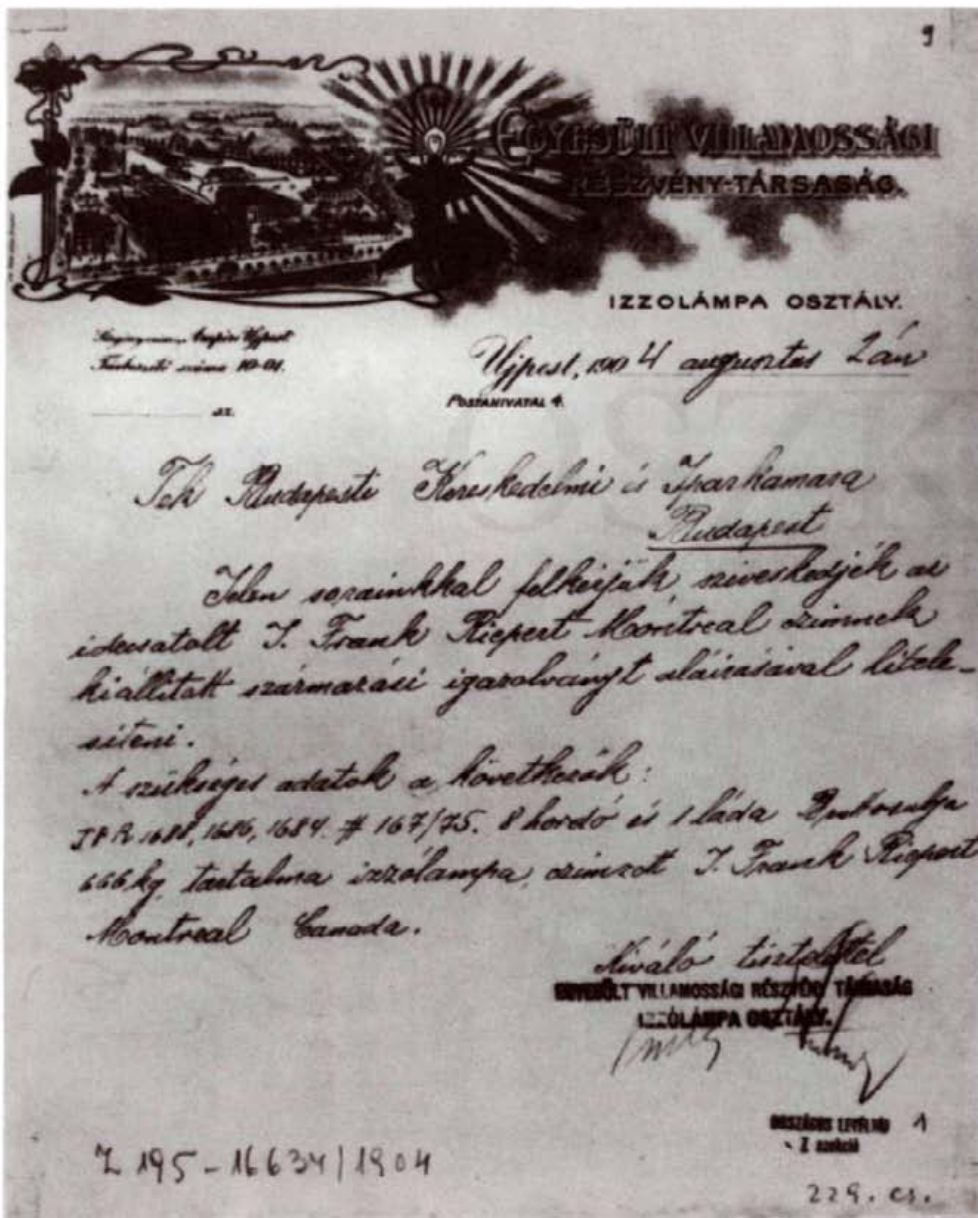 1
EGYESÜLT VILLAMOSSÁGI
RÉSZVÉNY-TÁRSASÁG.
IZZOLÁMPA OSZTÁLY.
Ujpest
száma 10-01.
Ujpest, 1904 augusztus 2án
POSTAHIVATAL 4.
sz.
Tek Budapesti Kereskedelmi és Iparkamara
Budapest
Jelen sorainkkal felkérjük, sziveskedjék az
idecsatolt J. Frank Riepert Montreal czimnek
kiállitott származási igazolványt aláirásával hitele-
siteni.
A szükséges adatok a következők:
JFR 1688, 1686, 1684. # 167/75. 8 hordó és 1 láda Bruttosulya
666 kg, tartalma izzólámpa, czimzett J. Frank Riepert
Montreal Canada.
Kiváló tisztelettel
EGYESÜLT VILLAMOSSÁGI RÉSZVÉNY TÁRSASÁG
IZZÓLÁMPA OSZTÁLY.
ORSZÁGOS LEVÉLTÁR 1
Z szekció
Z 195-16634/1904
229. cs.
OSZK